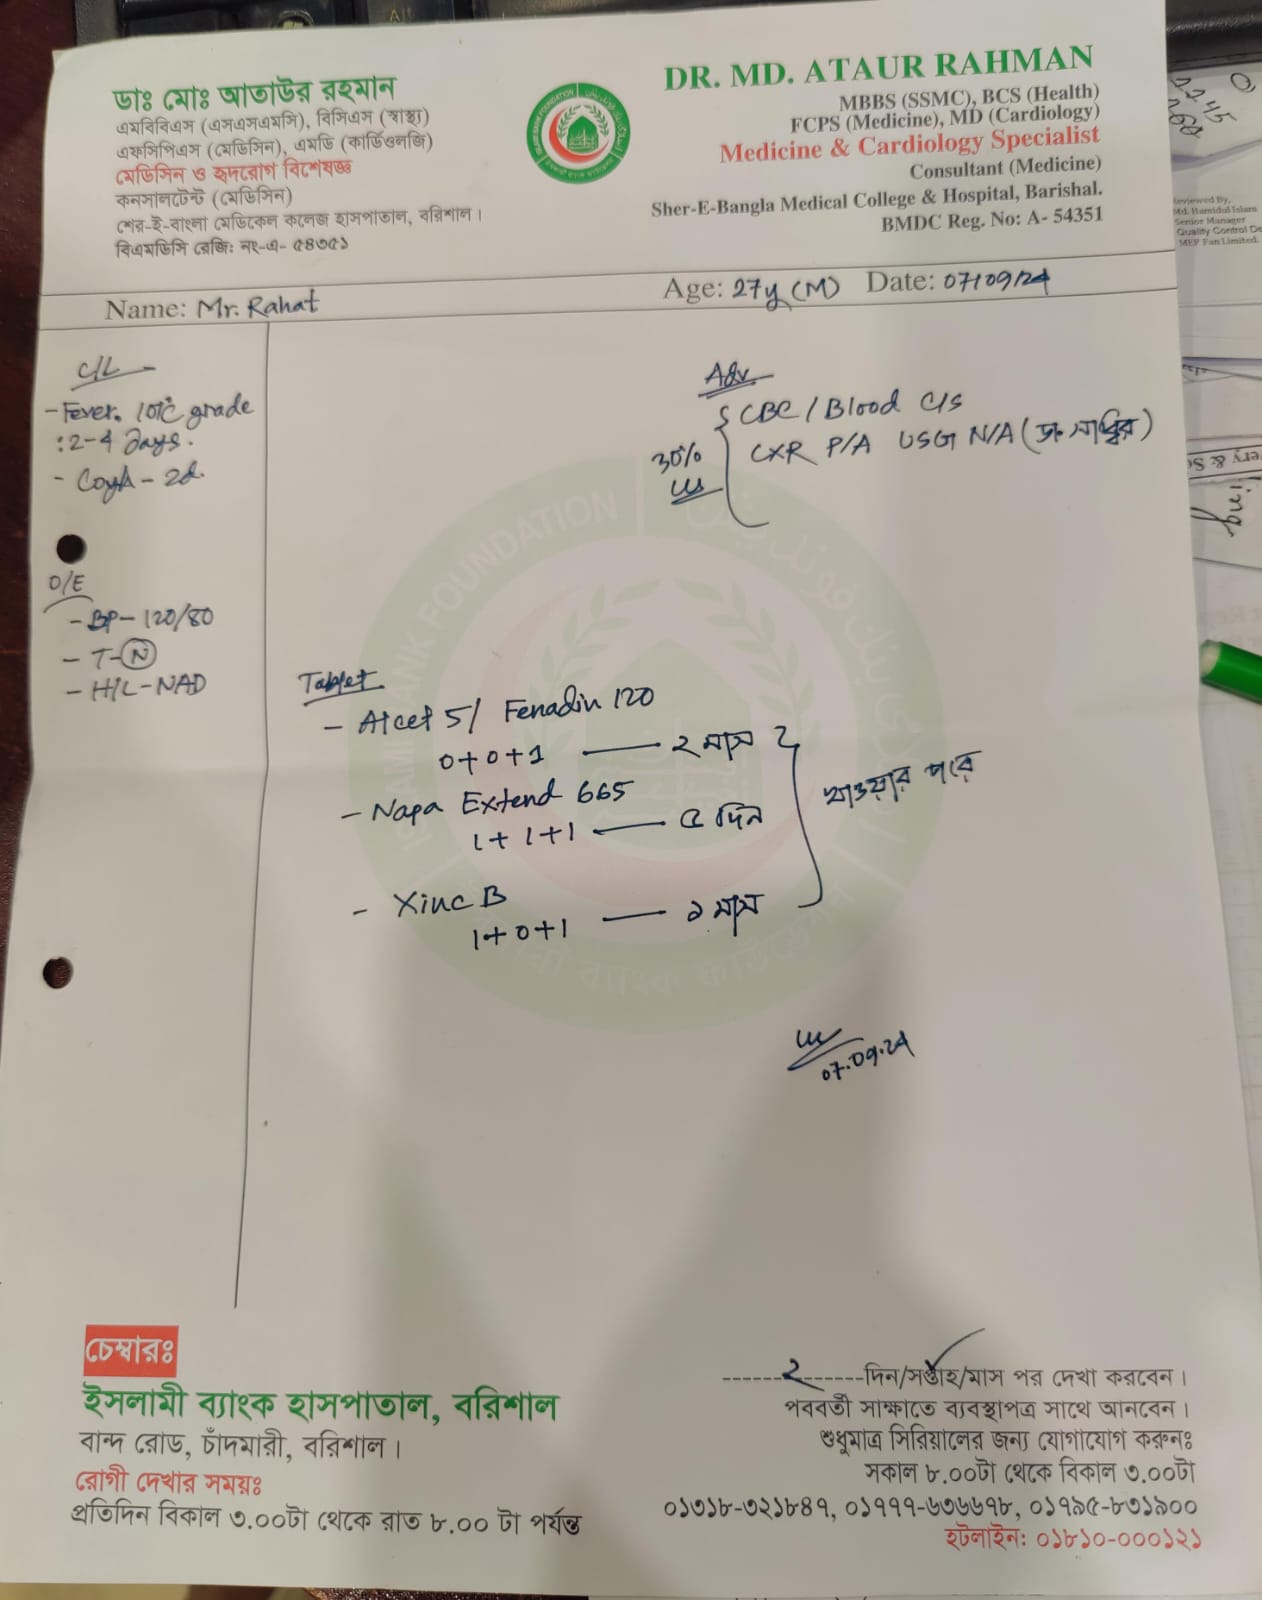 ডাঃ মোঃ আতাউর রহমান
এমবিবিএস (এসএসএমসি), বিসিএস (স্বাস্থ্য)
এফসিপিএস (মেডিসিন), এমডি (কার্ডিওলজি)
মেডিসিন ও হৃদরোগ বিশেষজ্ঞ
কনসালটেন্ট (মেডিসিন)
শের-ই-বাংলা মেডিকেল কলেজ হাসপাতাল, বরিশাল।
বিএমডিসি রেজি: নং-এ- ৫৪৩৫১
DR. MD. ATAUR RAHMAN
MBBS (SSMC), BCS (Health)
FCPS (Medicine), MD (Cardiology)
Medicine & Cardiology Specialist
Consultant (Medicine)
Sher-E-Bangla Medical College & Hospital, Barishal.
BMDC Reg. No: A- 54351
Name: Mr. Rahat Age: 27y (M) Date: 07/09/24
C/L
- Fever. grade
: 2-4 days.
- 2d.
O/E
- BP - 120/80
- T - N
- H/L - NAD
Adv
CBC / Blood C/S
CXR P/A USG N/A
30%
Tablet
- Alcet 5/ Fenadin 120
0+0+1 — ২ মাস
- Napa Extend 665
1+1+1 — ৫ দিন
- Xinc B
1+0+1 — ১ মাস
খাওয়ার পরে
07.09.24
চেম্বারঃ
ইসলামী ব্যাংক হাসপাতাল, বরিশাল
বান্দ রোড, চাঁদমারী, বরিশাল।
রোগী দেখার সময়ঃ
প্রতিদিন বিকাল ৩.০০টা থেকে রাত ৮.০০ টা পর্যন্ত
------২------দিন/সপ্তাহ/মাস পর দেখা করবেন।
পরবর্তী সাক্ষাতে ব্যবস্থাপত্র সাথে আনবেন।
শুধুমাত্র সিরিয়ালের জন্য যোগাযোগ করুনঃ
সকাল ৮.০০টা থেকে বিকাল ৩.০০টা
০১৩১৮-৩২১৮৪৭, ০১৭৭৭-৬৩৬৬৭৮, ০১৭৯৫-৮৩১৯০০
হটলাইন: ০১৮১০-০০০১২১
Reviewed By,
Md. Hamidul Islam
Senior Manager
Quality Control De
MEP Fan Limited.